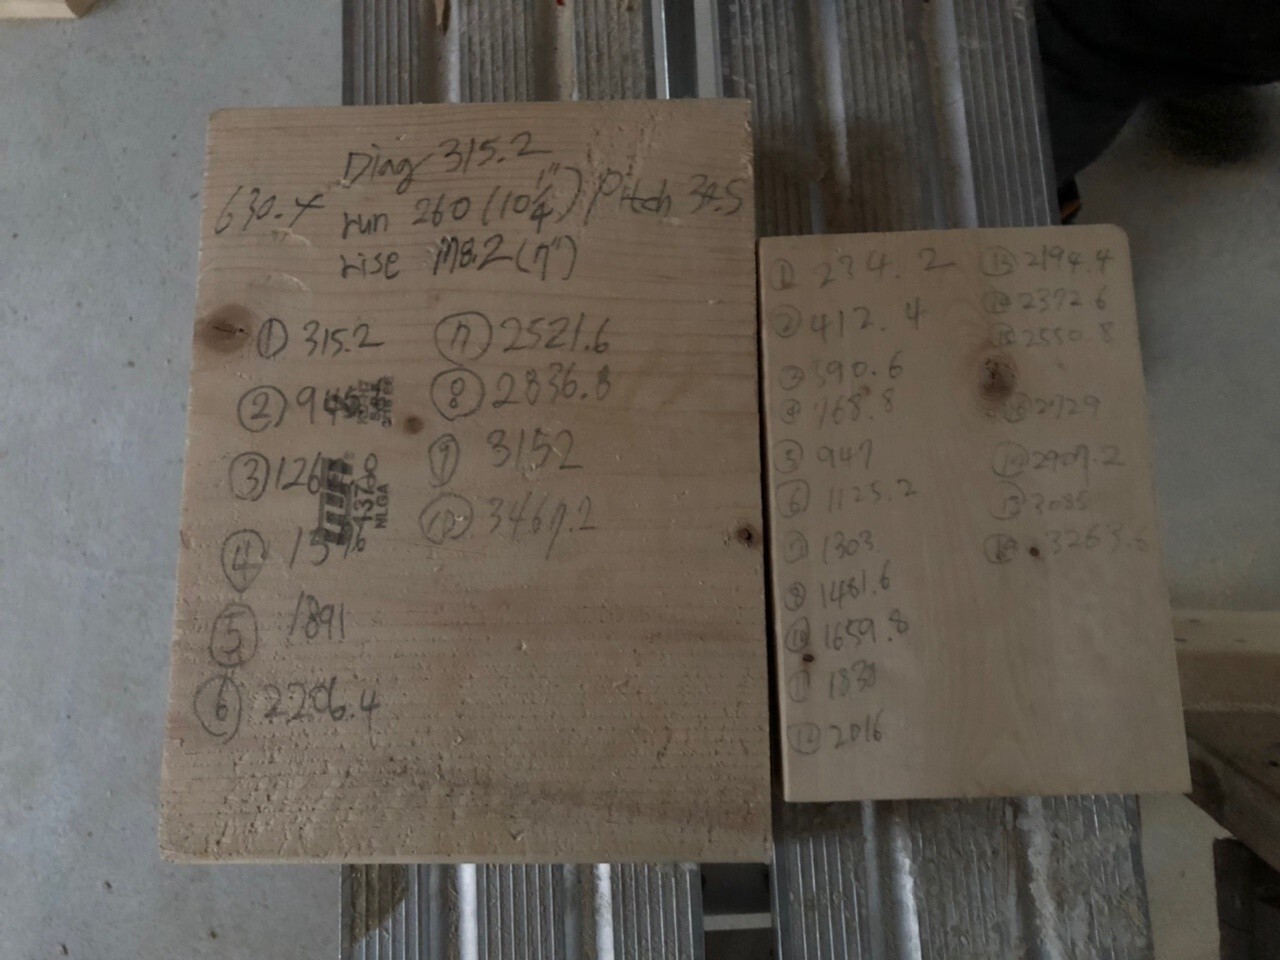 Diag 315.2
630.4 run 260 (10 1/4") Pitch 34.5
rise 178.2 (7")
① 315.2
② 945
③ 126
④ 1576
⑤ 1891
⑥ 2206.4
⑦ 2521.6
⑧ 2836.8
⑨ 3152
⑩ 3467.2
13700
NLGA
① 234.2
② 412.4
③ 590.6
④ 768.8
⑤ 947
⑥ 1125.2
⑦ 1303
1481.6
⑩ 1659.8
⑪ 1838
⑫ 2016
⑬ 2194.4
⑭ 2372.6
⑮ 2550.8
2729
2907.2
3085
3263.6